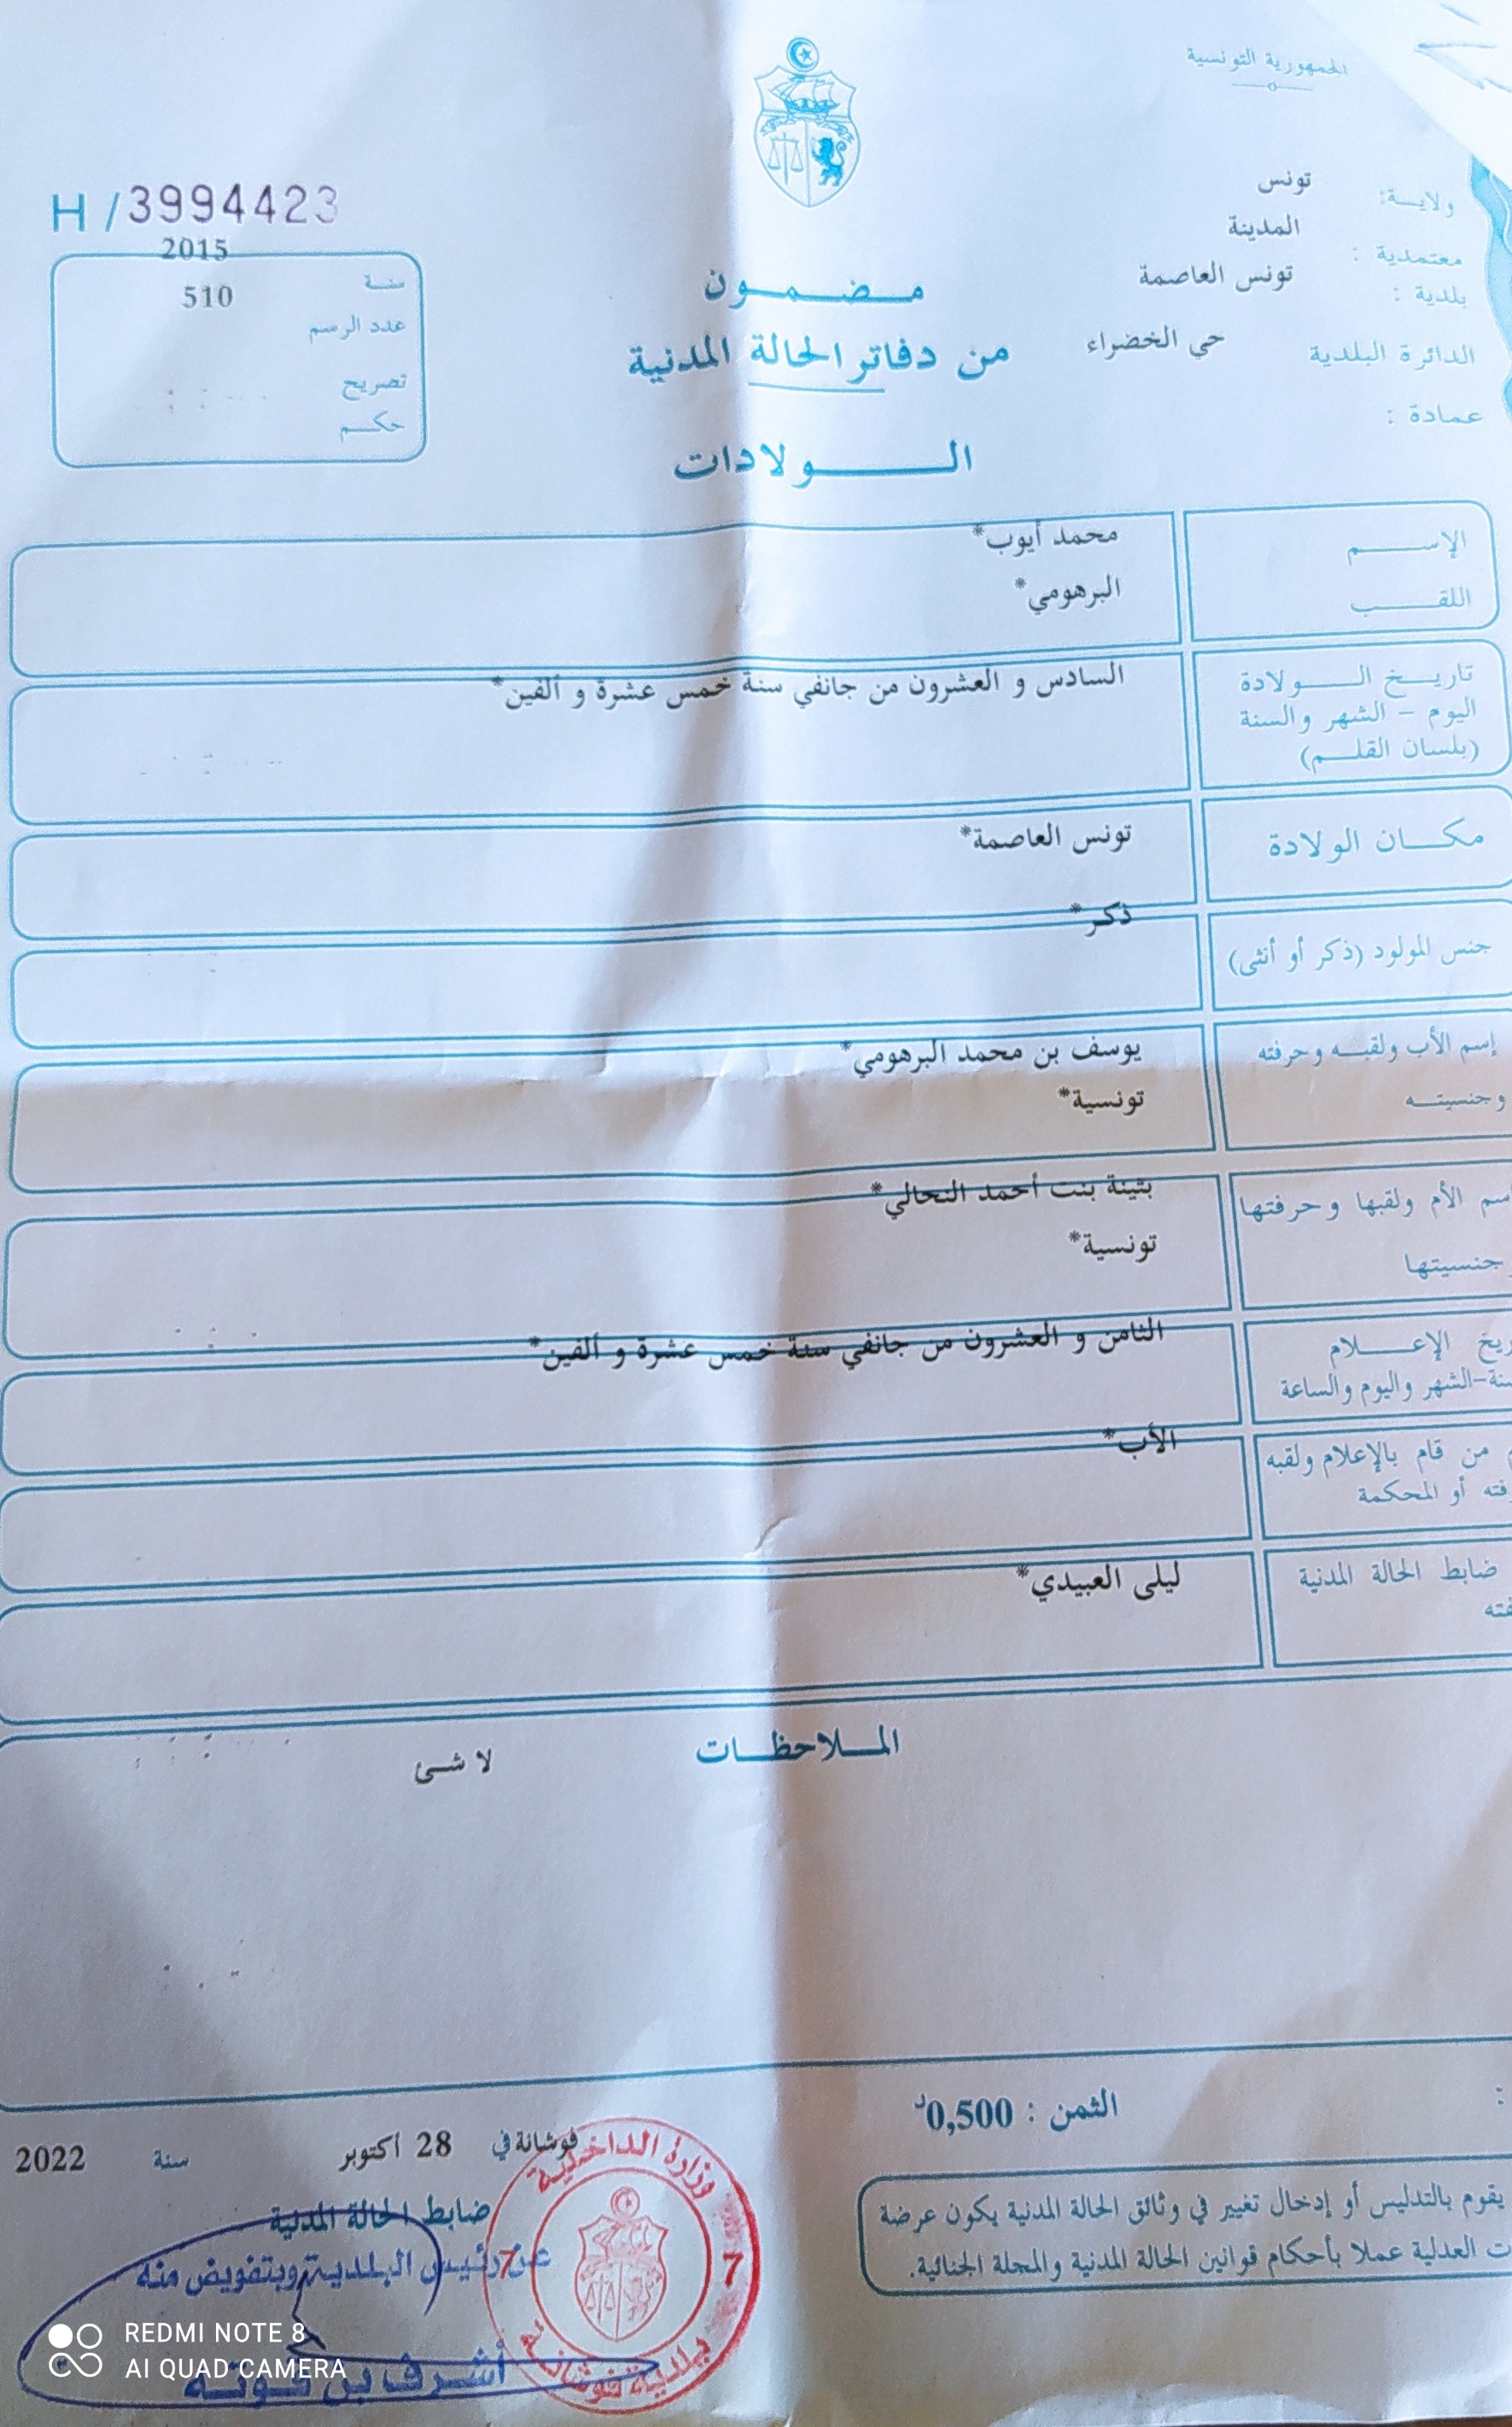 الجمهورية التونسية
ولاية: تونس
معتمدية : المدينة
بلدية : تونس العاصمة
الدائرة البلدية حي الخضراء
عمادة :
H/3994423
سنة 2015
عدد الرسم 510
تصريح
حكم
مضمون
من دفاتر الحالة المدنية
الولادات
الإسم محمد أيوب*
اللقب البرهومي*
تاريخ الولادة السادس و العشرون من جانفي سنة خمس عشرة و ألفين*
اليوم - الشهر والسنة
(بلسان القلم)
مكان الولادة تونس العاصمة*
جنس المولود (ذكر أو أنثى) ذكر*
إسم الأب ولقبه وحرفته يوسف بن محمد البرهومي*
وجنسيته تونسية*
سم الأم ولقبها وحرفتها بثينة بنت أحمد النحالي*
جنسيتها تونسية*
ريخ الإعلام الثامن و العشرون من جانفي سنة خمس عشرة و ألفين*
سنة-الشهر واليوم والساعة
من قام بالإعلام ولقبه الأب*
فته أو المحكمة
ضابط الحالة المدنية ليلى العبيدي*
فته
الملاحظات
لا شئ
الثمن : 0,500د
فوشانة في 28 أكتوبر سنة 2022
ضابط الحالة المدنية
عن رئيس البلدية وبتفويض منه
أشرف بن
وزارة الداخلية
7 7
بلدية فوشانة
يقوم بالتدليس أو إدخال تغيير في وثائق الحالة المدنية يكون عرضة
ت العدلية عملا بأحكام قوانين الحالة المدنية والمجلة الجنائية.
REDMI NOTE 8
AI QUAD CAMERA